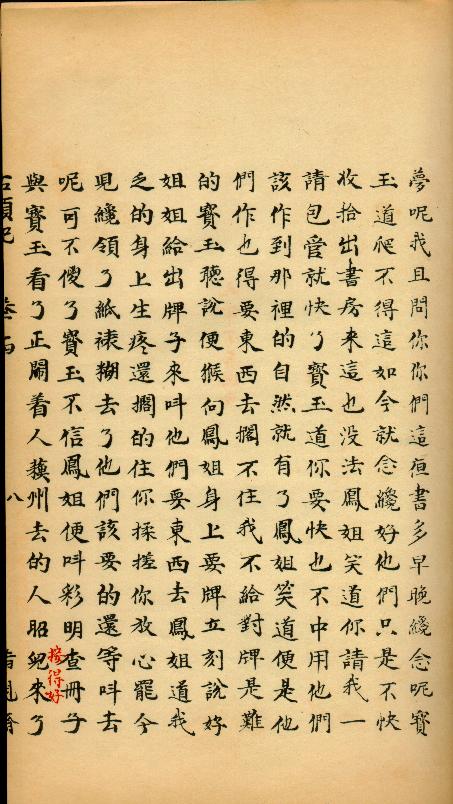 夢呢我且問你你們這亱書多早晚纔念呢寶
玉道爬不得這如今就念纔好他們只是不快
收拾出書房來這也没法鳳姐笑道你請我一
請包管就快了寶玉道你要快也不中用他們
該作到那裡的自然就有了鳳姐笑道便是他
們作也得要東西去擱不住我不給對牌是難
的寶玉聽說便猴向鳳姐身上要牌立刻說好
姐姐給出牌子來呌他們要東西去鳳姐道我
乏的身上生疼還擱的住你揉搓你放心罷今
兒纔領了紙裱糊去了他們該要的還等呌去
呢可不傻了寶玉不信鳳姐便呌彩明查冊子
接得好
與寶玉看了正鬧着人蘓州去的人昭兒來了
八